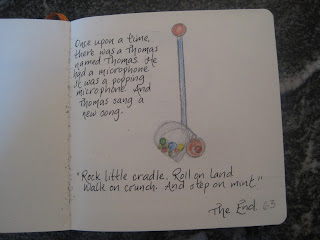 Once upon a time,
there was a Thomas
named Thomas. He
had a microphone.
It was a popping
microphone. And
Thomas sang a
new song.
"Rock little cradle. Roll on land
Walk on crunch. And step on mint."
The End. 63